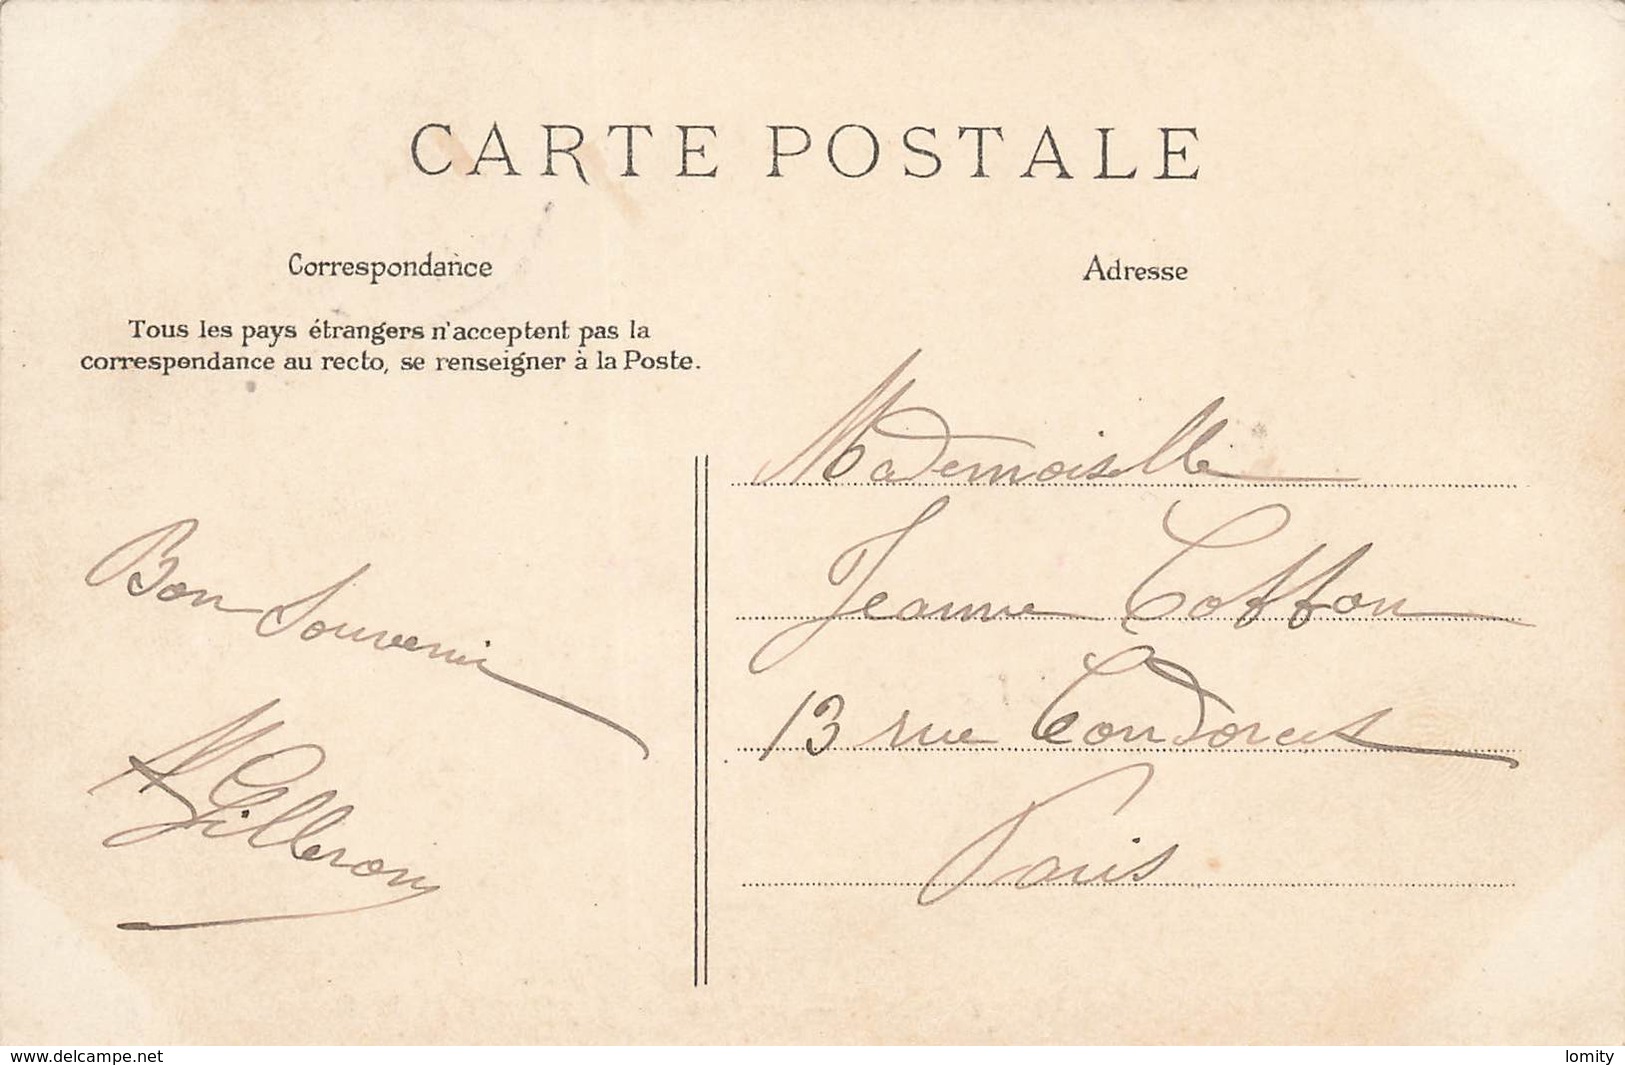 CARTE POSTALE
Correspondance
Tous les pays étrangers n'acceptent pas la
correspondance au recto, se renseigner à la Poste.
Bon Souvenir
M Gilleron
Adresse
Mademoiselle
Jeanne Coffon
13 rue Condorcet
Paris
www.delcampe.net
lomity